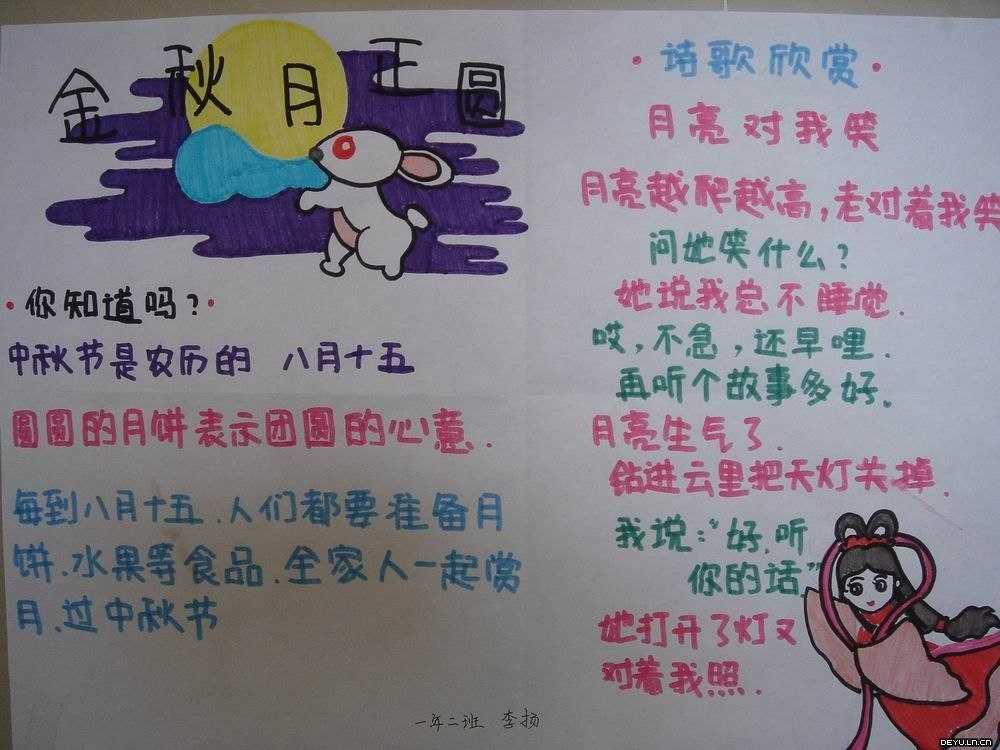 金秋月正圆
·你知道吗?·
中秋节是农历的 八月十五
圆圆的月饼表示团圆的心意.
每到八月十五.人们都要准备月
饼.水果等食品.全家人一起赏
月.过中秋节
·诗歌欣赏·
月亮对我笑
月亮越爬越高,老对着我笑
问她笑什么?
她说我总不睡觉.
哎,不急,还早哩.
再听个故事多好.
月亮生气了.
钻进云里把天灯关掉.
我说:“好.听
你的话.”
她打开了灯又
对着我照.
一年二班 李扬
DEYU.LN.CN